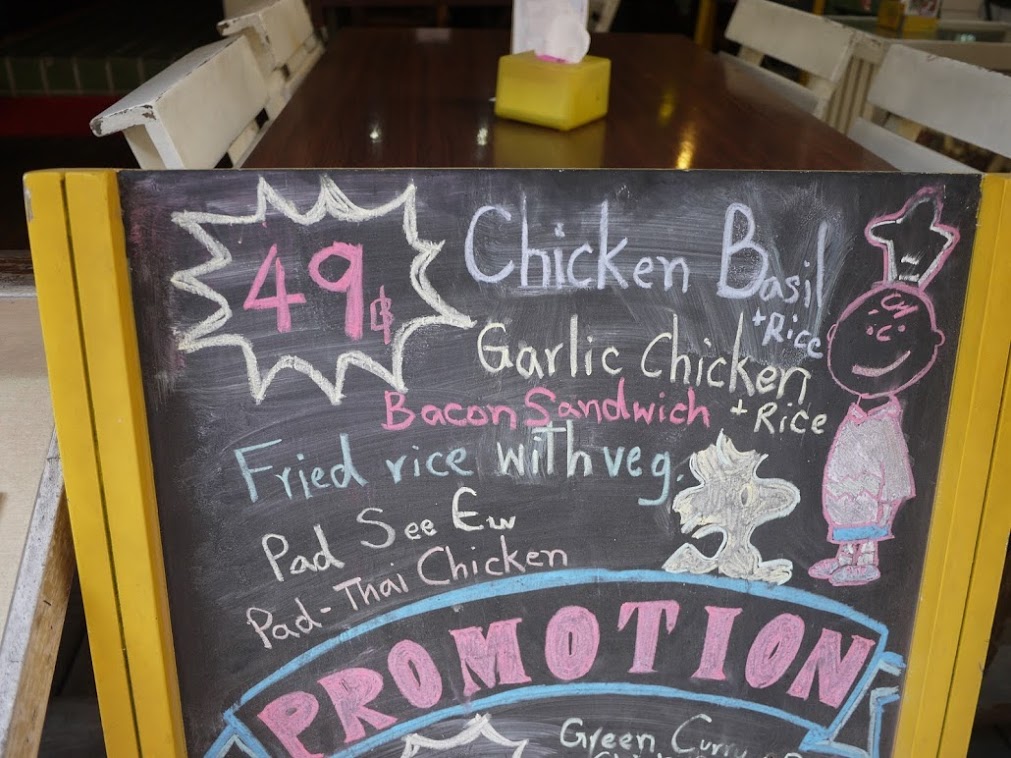 49฿
Chicken Basil
+ Rice
Garlic Chicken
+ Rice
Bacon Sandwich
Fried rice with veg.
Pad See Ew
Pad-Thai Chicken
PROMOTION
Green Curry